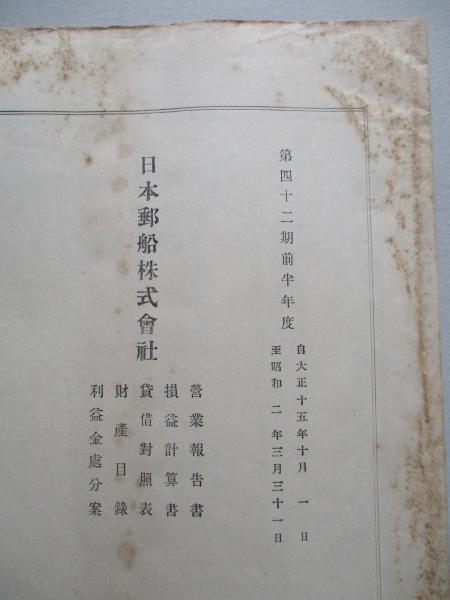 第四十二期前半年度
自大正十五年十月一日
至昭和二年三月三十一日
日本郵船株式會社
營業報告書
損益計算書
貸借對照表
財產目錄
利益金處分案